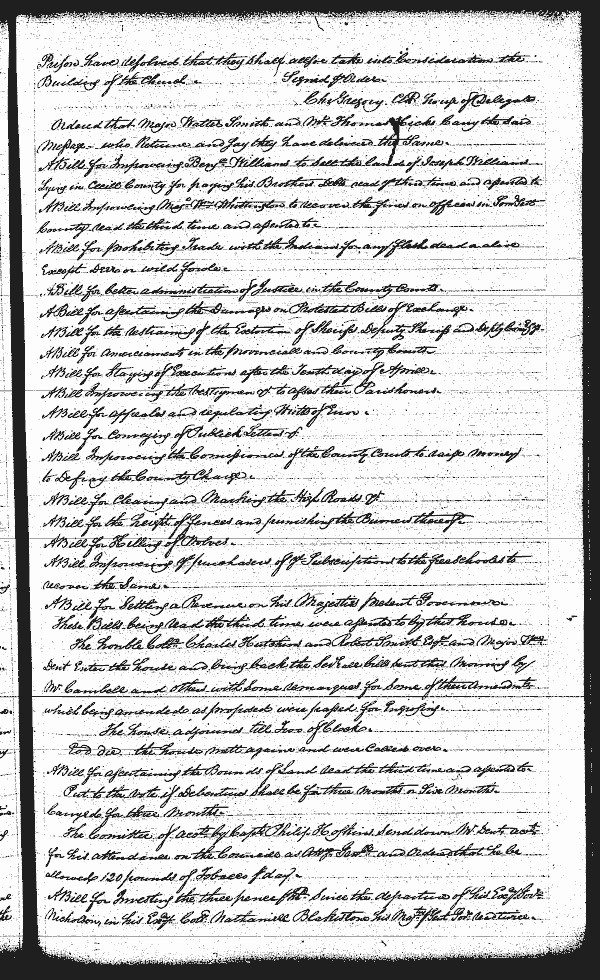 Prison have resolved that they shall alsoe take into Consideration the
Building of the Church. Signed p Order.
Chr Gregory. Clk house of Delegates
Ordered that Major Walter Smith and Mr Thomas Hicks Carry the said
Message. who Returne and Say they have delivered the Same.
A Bill for Impowring Benja Williams to Sell the land of Joseph Williams
Lying in Cecill County for paying his Brothers Debts read ye third time and assented to
A Bill Impowring Majr Wm Whitington to recover the fines on officers in Somersett
County read the third time and assented to.
A Bill for prohibiting Trade with the Indians for any flesh dead or alive
Except Deer or wild fowle.
A Bill for better administration of Justice in the County Courts.
A Bill for ascertaining the Damages on Protested Bills of Exchange.
A Bill for the restraining of the Extortion of Sheriffs Deputy Sheriffs and
A Bill for Amerciament in the provinciall and County Courts
A Bill for Staying of Executions after the Tenth day of Aprill.
A Bill Impowering the Vestrymen to assess their Parishoners.
A Bill for appeales and regulating Writts of Error.
A Bill for Conveying of Publick Letters
A Bill Impowering the Comissioners of the County Courts to raise money
to Defray the County Charge.
A Bill for Clearing and Marking the High Roads
A Bill for the height of fences and punishing the Burners thereof.
A Bill for Killing of Wolves.
A Bill Impowering ye purchasers of ye Subscriptions to the free Schooles to
recover the Same.
A Bill for Settling a Revenue on his Majesties present Governour
These Bills being read the third time were assented to by this house.
The honble Collo Charles Hutchins and Robert Smith Esqr and Major Wm
Dent Enter the house and bring back the Severall bills sent this Morning by
Mr Cambell and others with Some remarques for Some of their Amendmts
which being amended as proposed were passed for Ingrossing.
The house adjourns till Two of Clock.
Eod die the house mett againe and were Called over.
A Bill for ascertaining the Bounds of Land read the third time and assented to.
Put to the Vote if Debentures Shall be for three Months or Six Months.
Carryed for three Months.
The Comittee of accts by Capt Philip Hoskins Send down Mr Dents acct
for his attendance on the Councile as and Ordered that he be
allowed 120 pounds of Tobacco p day.
A Bill for Investing the three pence p hhd Since the departure of his Exy Govr
Nicholson, in his Exy Collo Nathaniell Blakiston his Majtys present Govr read twice.